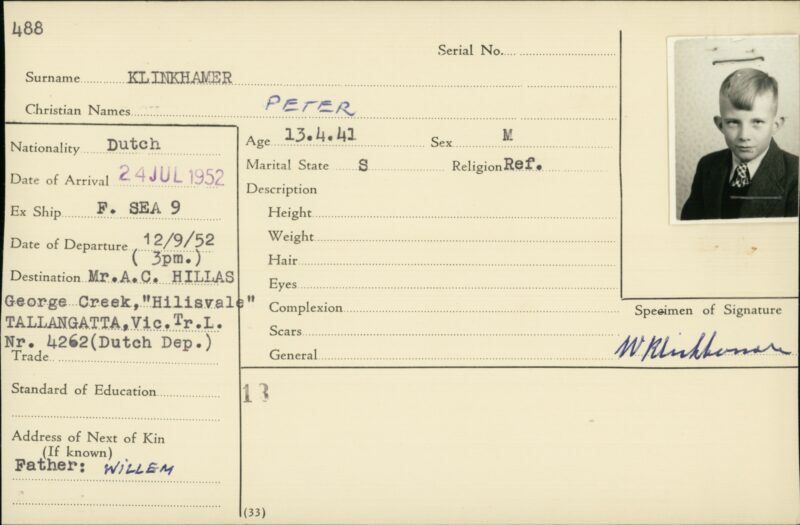 488
Serial No.
Surname KLINKHAMER
Christian Names PETER
Nationality Dutch
Date of Arrival 24 JUL 1952
Ex Ship F. SEA 9
Date of Departure 12/9/52
( 3pm.)
Destination Mr.A.C. HILLAS
George Creek,"Hilisvale"
TALLANGATTA,Vic.Tr.L.
Nr. 4262(Dutch Dep.)
Trade
Standard of Education
Address of Next of Kin
(If known)
Father: WILLEM
Age 13.4.41 Sex M
Marital State S Religion Ref.
Description
Height
Weight
Hair
Eyes
Complexion
Scars
General
Specimen of Signature
13
(33)